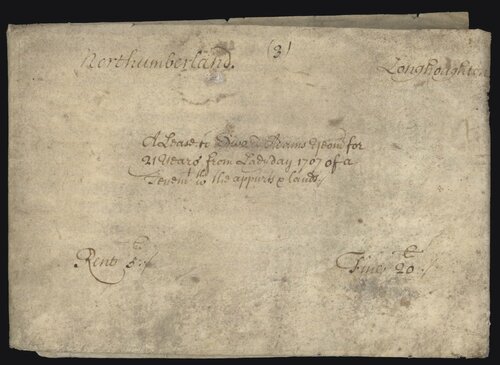 Northumberland. (3) Longhoughton
A Lease to Edward Adams Yeom for
21 Years from Ladyday 1707 of a
Tenemt wth the appurts & lands
Rent £ 5 Fine £ 20